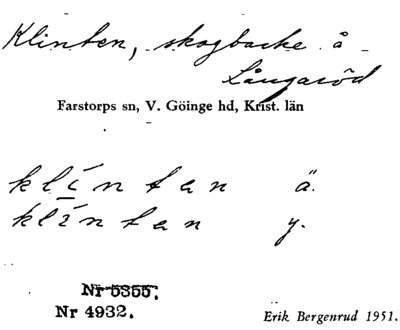 Klinten, skogbacke å
Långaröd
Farstorps sn, V. Göinge hd, Krist. län
klíntan ä.
klíntan y.
Nr 5355.
Nr 4932.
Erik Bergenrud 1951.